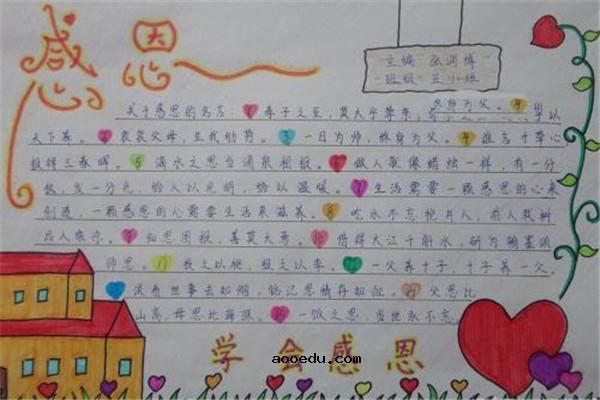 感恩
主编 张润博
班级 五(1)班
终身为父。4
关于感恩的名言：1 孝子之至，莫大乎尊亲，
以天下养。2 哀哀父母，生我劬劳。3 一日为师，终身为父。4 谁言寸草心
报得三春晖。5 滴水之恩当涌泉相报。6 做人就像蜡烛一样，有一分
热，发一分光，给人以光明，给以温暖。7 生活需要一颗感恩的心来
创造，一颗感恩的心需要生活来滋养。8 吃水不忘挖井人，前人栽树
后人乘凉。9 知恩图报，善莫大焉。10 借得大江千斛水，研为翰墨颂
师恩。11 投之以桃，报之以李。12 一父养十子，十子养一父。
13 谈看世事去如烟，铭记恩情存如血。14 父恩比
山高，母恩比海深。15 一饭之恩，当世永不忘。
学会感恩
aooedu.com